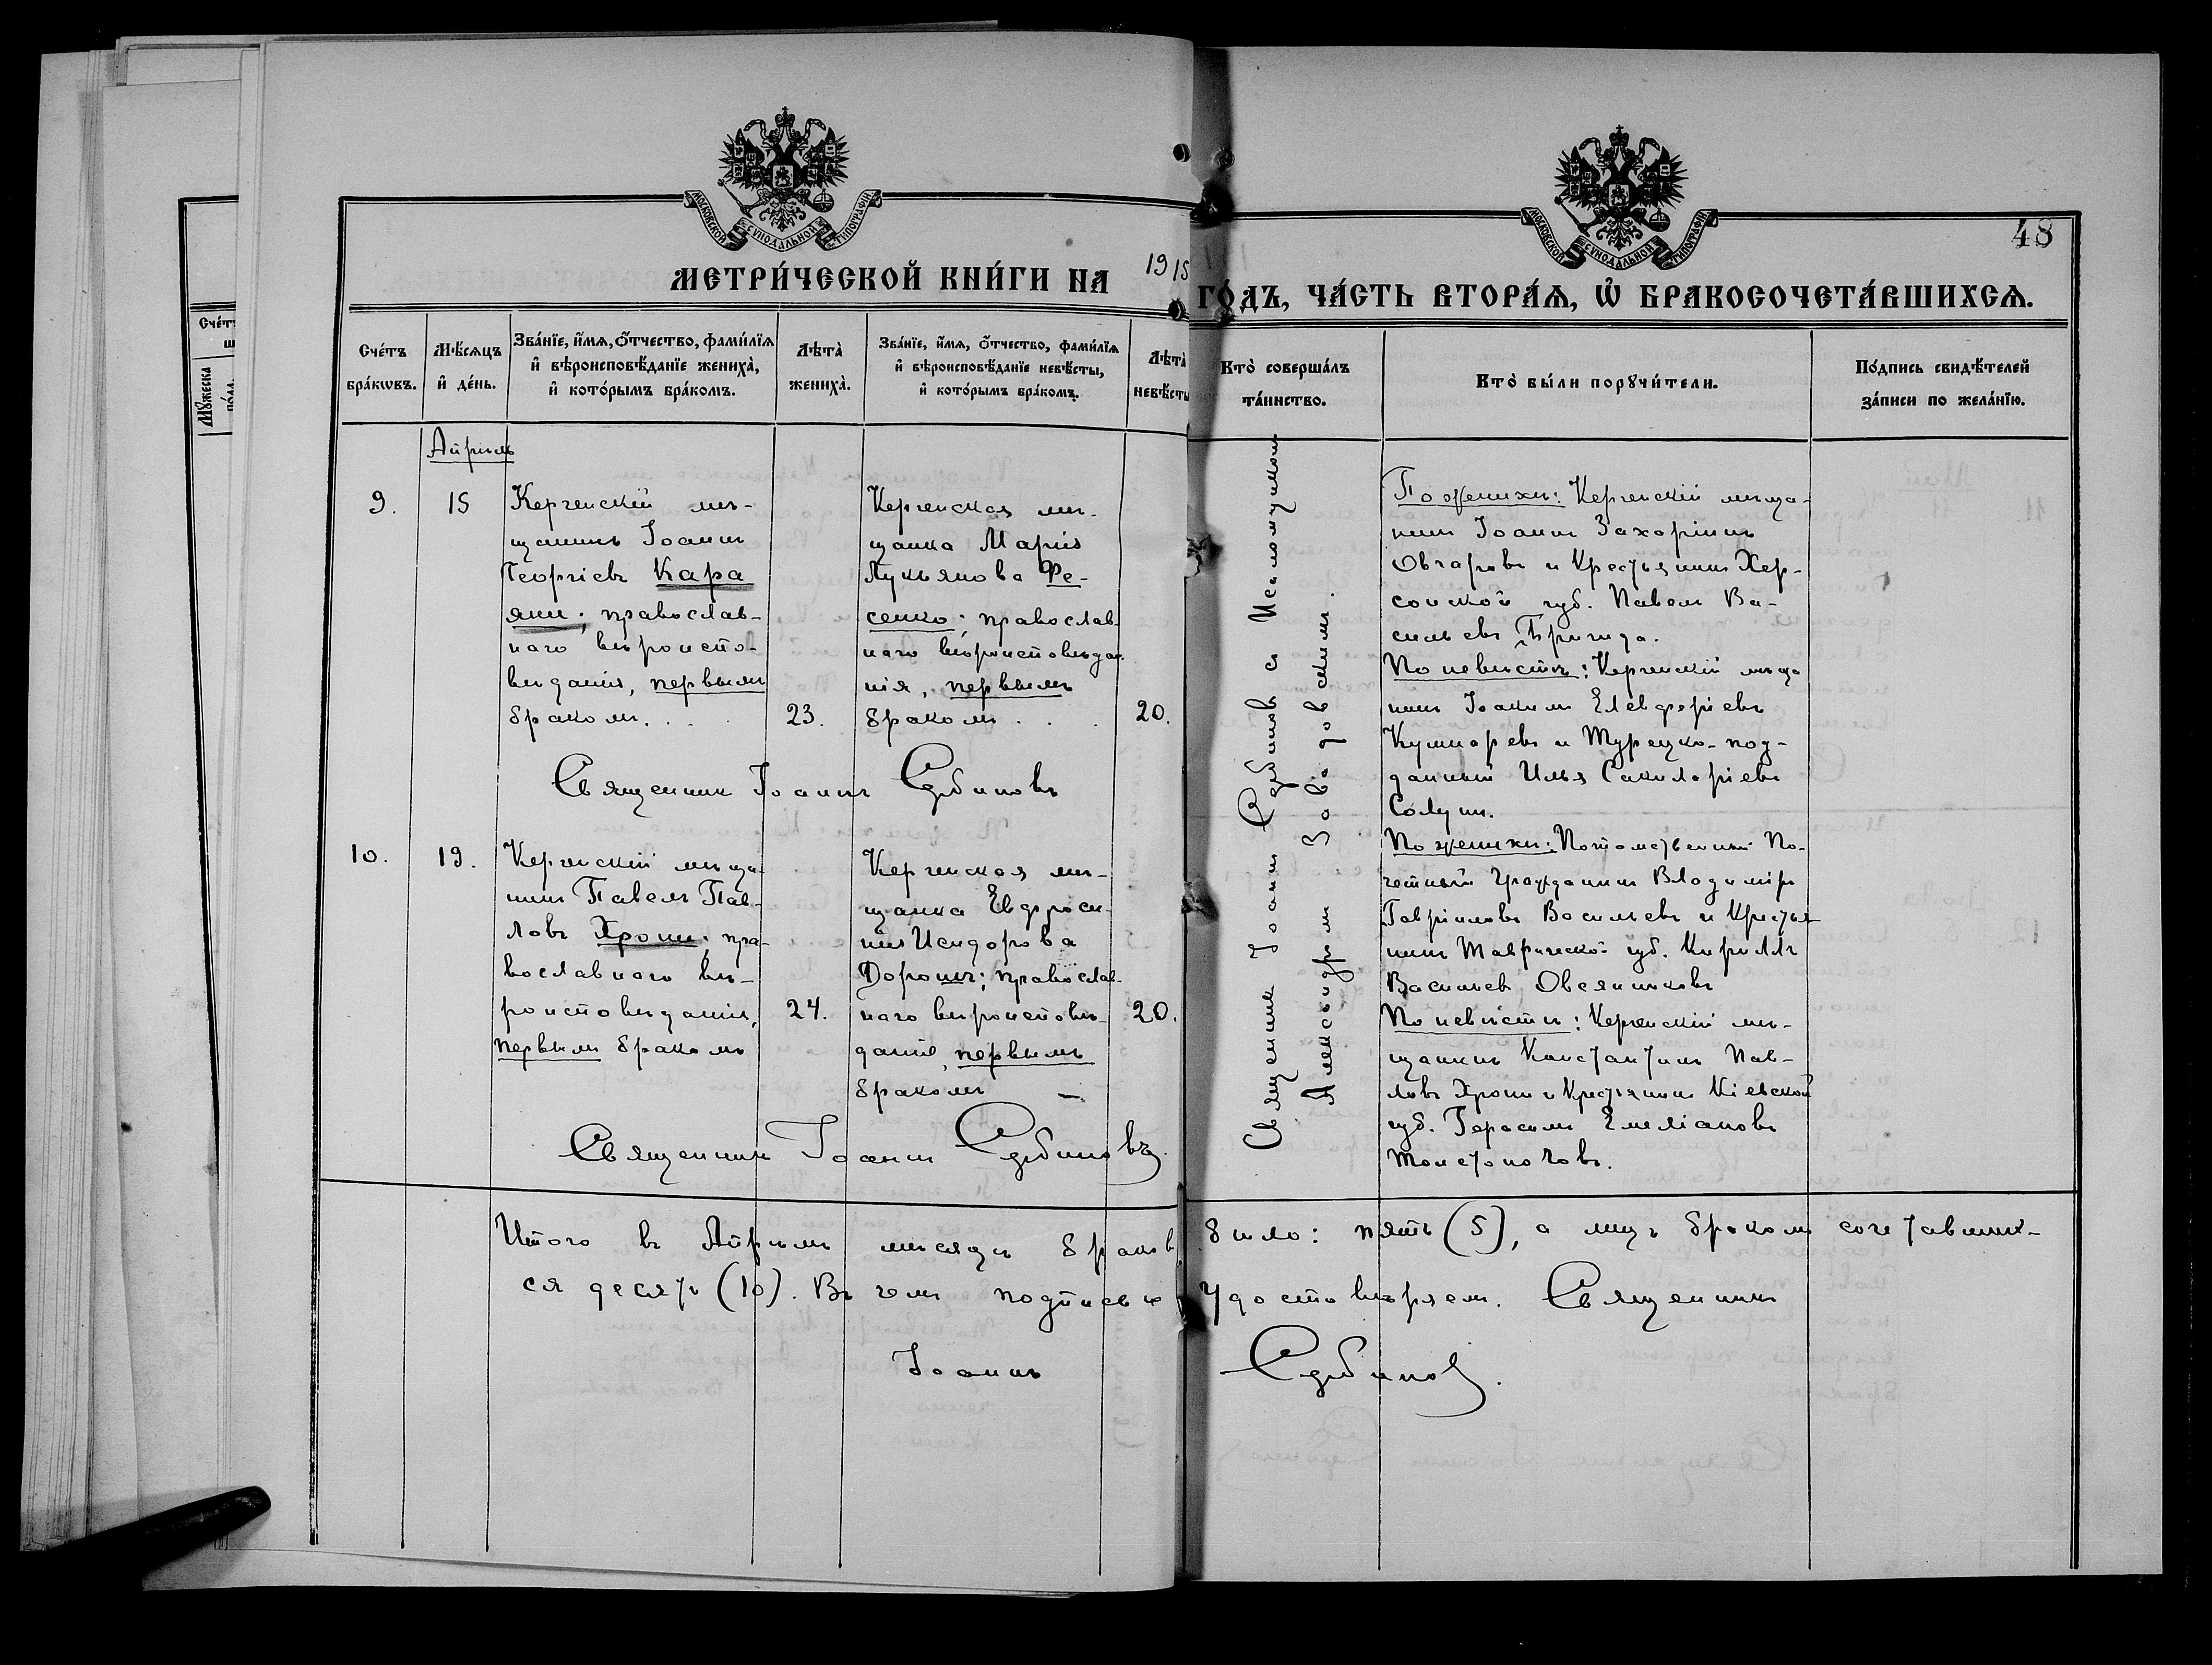 МОСКОВСКОЙ СѴНОДАЛЬНОЙ ТИПОГРАФІИ
МОСКОВСКОЙ СѴНОДАЛЬНОЙ ТИПОГРАФІИ
48
МЕТРИ́ЧЕСКОЙ КНИ́ГИ НА 1915 ГО́ДЪ, ЧА́СТЬ ВТОРА́Ѧ, Ѡ҆ БРАКОСОЧЕТА́ВШИХСѦ.
Сче́тъ
бра́кѡвъ.
Мѣ́сѧцъ
и҆ де́нь.
Зва́нїе, и҆́мѧ, ѻ҆́тчество, фами́лїѧ
и҆ вѣроисповѣ́данїе жениха̀,
и҆ кото́рымъ бра́комъ.
Лѣта̀
жениха̀.
Зва́нїе, и҆́мѧ, ѻ҆́тчество, фами́лїѧ
и҆ вѣроисповѣ́данїе невѣ́сты,
и҆ кото́рымъ бра́комъ.
Лѣта̀
невѣ́сты
Кто̀ соверша́лъ
та́инство.
Кто̀ бы́ли порꙋчи́тели.
По́дпись свидѣ́телей
за́писи по жела́нїю.
Апрѣль
9.
15
Керченскій мѣ-
щанинъ Іоаннъ
Георгіевъ Кара
яни; православ-
наго вѣроиспо-
вѣданія, первымъ
бракомъ. . .
23.
Керченская мѣ-
щанка Марія
Лукьянова Фе-
сенко; православ-
наго вѣроисповѣда-
нія, первымъ
бракомъ . . .
20.
Священникъ Іоаннъ Сербиновъ
По женихѣ: Керченскій мѣща-
нинъ Іоаннъ Захаріинъ
Овчаровъ и Крестьянинъ Хер-
сонской губ. Павелъ Ва-
сильевъ
По невѣстѣ: Керченскій мѣща
нинъ Іоакимъ Елевферіевъ
и Турецко-под-
данный Илья
Солунъ.
10.
19.
Керченскій мѣща-
нинъ Павелъ Пав-
ловъ Хрони; пра-
вославнаго вѣ-
роисповѣданія,
первымъ бракомъ
24.
Керченская мѣ-
щанка Евфроси-
нія Исидорова
Дорошъ; православ-
наго вѣроисповѣ-
данія, первымъ
бракомъ —
20.
Священникъ Іоаннъ Сербиновъ.
Священникъ Іоаннъ Сербиновъ съ Псаломщикомъ
Александромъ Завадовскимъ.
По женихѣ: Потомственный По-
четный Гражданинъ Владиміръ
Гавріиловъ Васильевъ и Крестья-
нинъ Таврической губ. Кириллъ
Васильевъ Овсянниковъ
По невѣстѣ: Керченскій мѣ-
щанинъ Константинъ Пав-
ловъ Хрони и Крестьянинъ Кіевской
губ. Герасимъ Емеліановъ
Толстоноговъ.
Итого въ Апрѣлѣ мѣсяцѣ браковъ было: пять (5), а лицъ бракомъ сочетавших-
ся десять (10). Въ чемъ подписью удостовѣряемъ. Священникъ
Іоаннъ Сербиновъ.